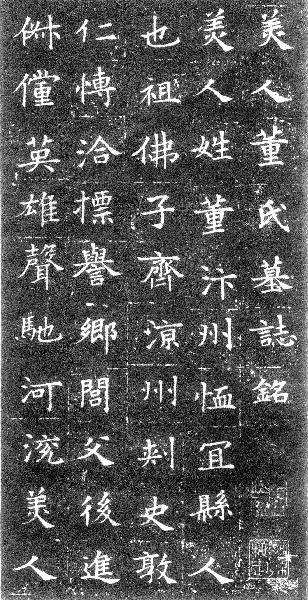 美人董氏墓誌銘
美人姓董汴州恤冝縣人
也祖佛子齊涼州刾史敦
仁愽洽標譽鄉閭父後進
俶儻英雄聲馳河渷美人